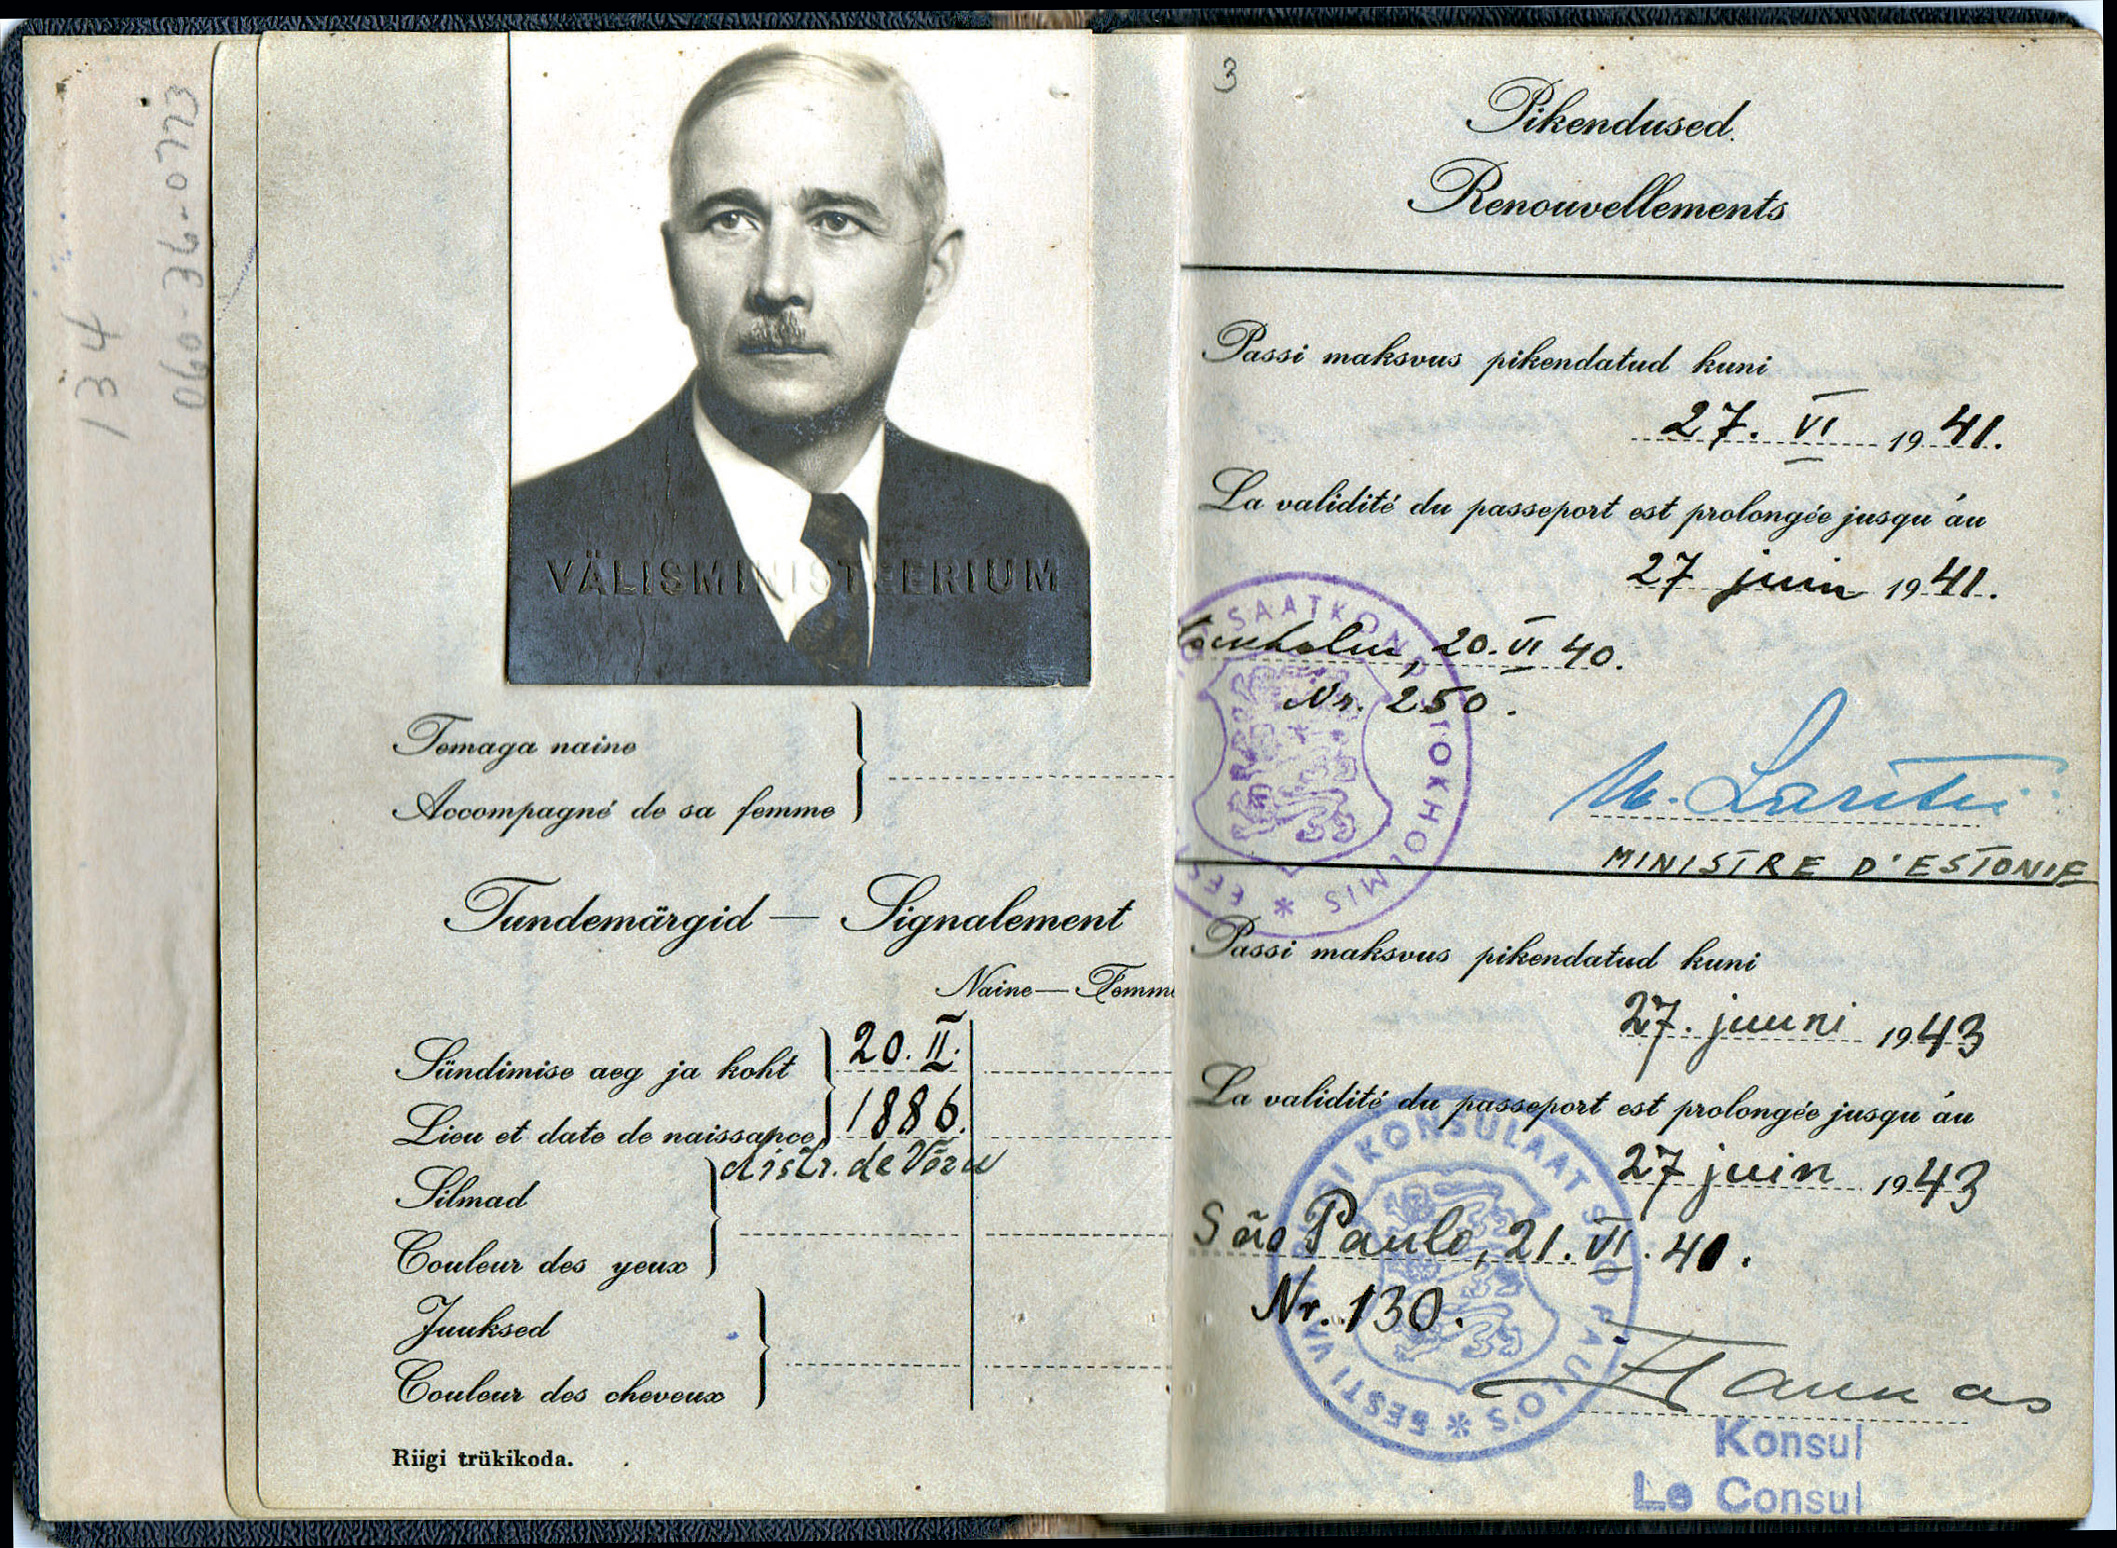 134
060-36-0773
VÄLISMINISTEERIUM
Temaga naine
Accompagné de sa femme
Tundemärgid — Signalement
Naine — Femme
Sündimise aeg ja koht
20. II.
Lieu et date de naissance
1886.
distr. de Võru
Silmad
Couleur des yeux
Juuksed
Couleur des cheveux
Riigi trükikoda.
3
Pikendused.
Renouvellements
Passi maksvus pikendatud kuni
27. VI 1941.
La validité du passeport est prolongée jusqu'áu
27 juin 1941.
20. VI 40.
Nr. 250.
SAATKOND STOKHOLMIS * EESTI
MINISTRE D'ESTONIE
Passi maksvus pikendatud kuni
27. juuni 1943
La validité du passeport est prolongée jusqu'áu
27 juin 1943
São Paulo, 21. VI. 41.
Nr. 130.
EESTI VABARIIGI KONSULAAT SÃO PAULO'S *
Konsul
Le Consul